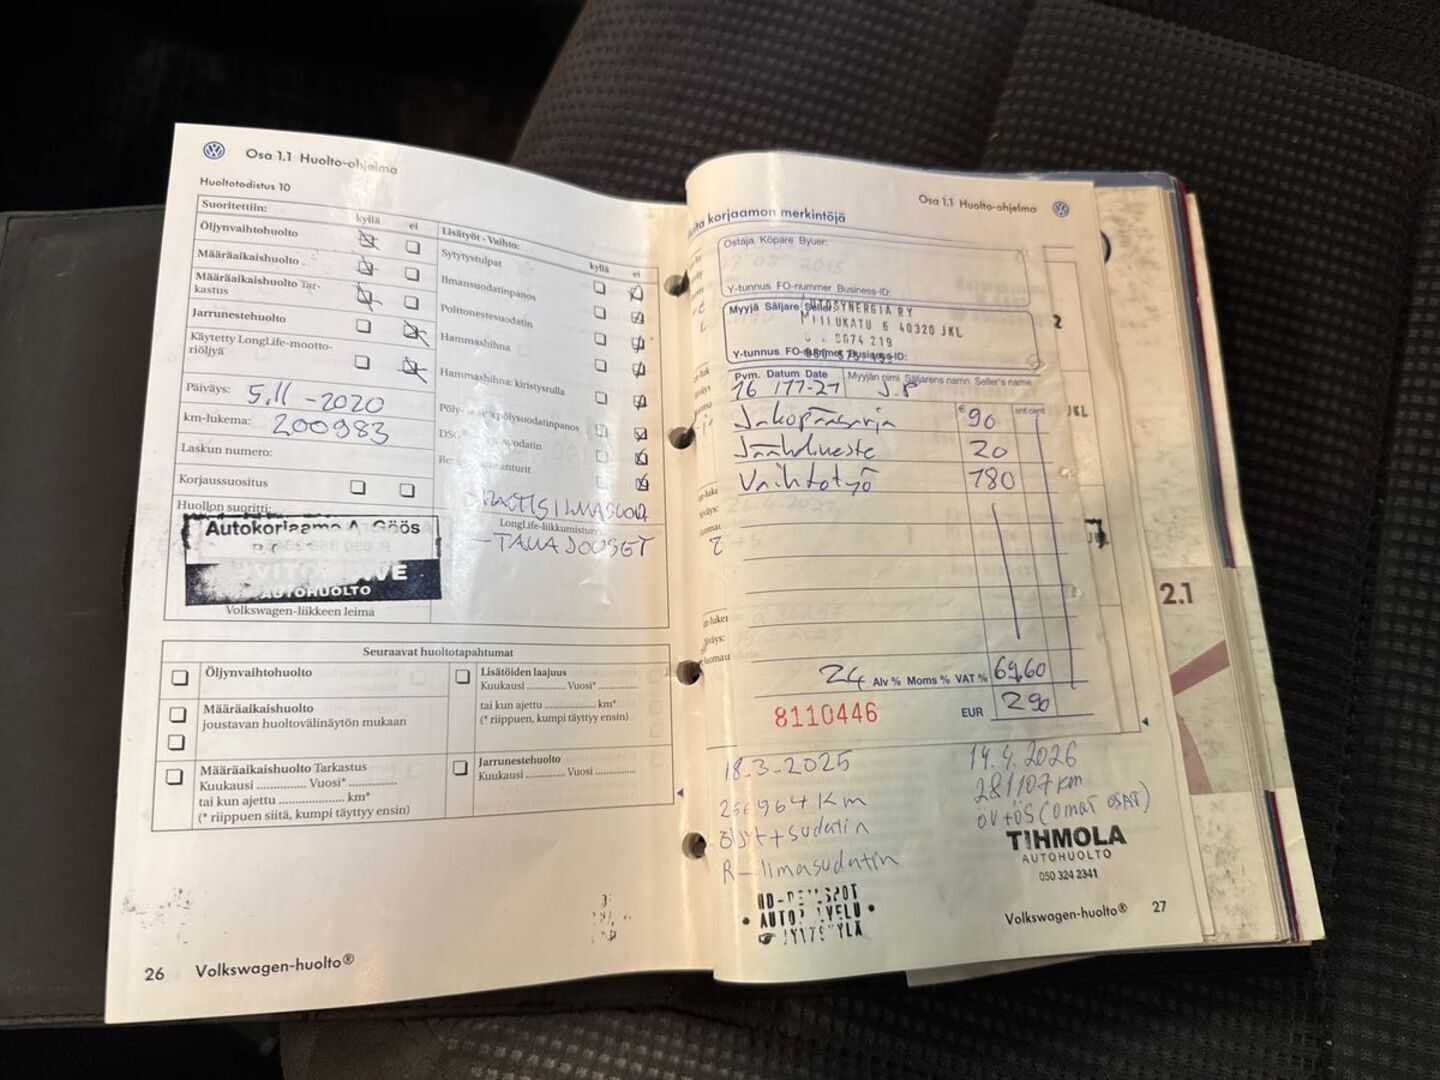 Osa 1.1 Huolto-ohjelma
Huoltotodistus 10
Suoritettiin: kyllä ei
Öljynvaihtohuolto
Määräaikaishuolto
Määräaikaishuolto Tar-
kastus
Jarrunestehuolto
Käytetty LongLife-mootto-
riöljyä
Päiväys: 5.11-2020
km-lukema: 200983
Laskun numero:
Korjaussuositus
Huollon suoritti:
Autokorjaamo A. Göös
AUTOHUOLTO
Volkswagen-liikkeen leima
Lisätyöt - Vaihto: kyllä ei
Sytytystulpat
Ilmansuodatinpanos
Polttonestesuodatin
Hammashihna
Hammashihna: kiristysrulla
Pöly- ja
DSG
LongLife-liikkumisturv
Seuraavat huoltotapahtumat
Öljynvaihtohuolto
Määräaikaishuolto
joustavan huoltovälinäytön mukaan
Määräaikaishuolto Tarkastus
Kuukausi .............. Vuosi* ..............
tai kun ajettu .................... km*
(* riippuen siitä, kumpi täyttyy ensin)
Lisätöiden laajuus
Kuukausi ............. Vuosi* .............
tai kun ajettu .................... km*
(* riippuen, kumpi täyttyy ensin)
Jarrunestehuolto
Kuukausi ............. Vuosi .............
26 Volkswagen-huolto®
Osa 1.1 Huolto-ohjelma
korjaamon merkintöjä
Ostaja Köpare Byuer:
Y-tunnus FO-nummer Business-ID:
Myyjä Säljare Seller
AUTOSYNERGIA RY
6 40320 JKL
Y-tunnus FO-nummer Business-ID:
Pvm. Datum Date Myyjän nimi Säljarens namn Seller's name
J.P
Jakopääsarja € 90
Jäähdneste 20
Vaihtotyö 180
24 Alv % Moms % VAT % 69,60
8110446 EUR 290
18.3-2025
256964 Km
Öljyt+sudatin
R-Ilmasudatin
14.4.2026
281107 km
ÖV+ÖS (OMAT OSAT)
TIHMOLA
AUTOHUOLTO
050 324 2341
Volkswagen-huolto® 27
JKL
2
2.1